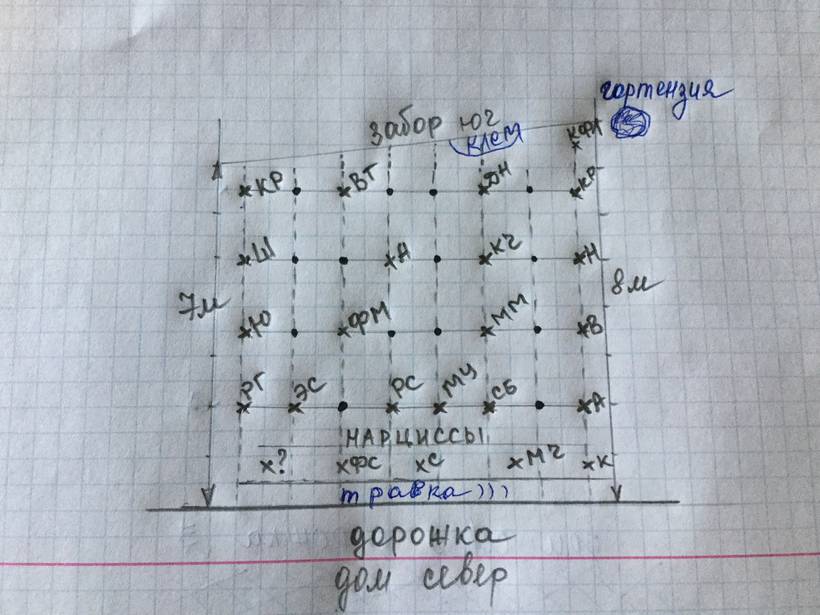 гортензия
забор юг
клем
КФЛ
КР ВТ ДН КР
Ш А КЧ Н
7м 8м
Ю ФМ ММ В
РГ ЭС РС МЦ СБ А
НАРЦИССЫ
? ФС С МЧ К
травка)))
дорожка
дом север